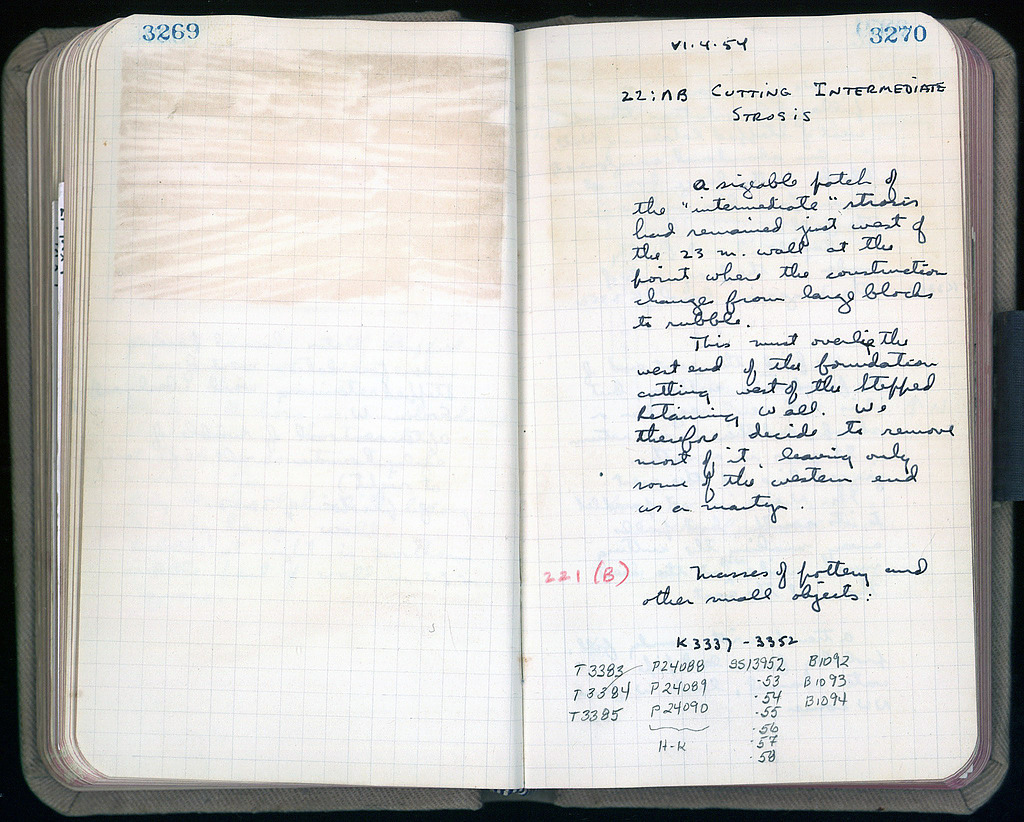 3269
3270
VI.4.54
22:ΛΒ CUTTING INTERMEDIATE
STROSIS
A sizeable patch of
the "intermediate" strosis
had remained just west of
the 23 m. wall at the
point where the construction
changes from large blocks
to rubble.
This must overlie the
west end of the foundation
cutting west of the Stepped
Retaining Wall. We
therefore decide to remove
most of it, leaving only
some of the western end
as a martyr.
221 (B) Masses of pottery and
other small objects:
K3337 - 3352
T3383 P24088 SS13952 B1092
T3384 P24089 -53 B1093
T3385 P24090 -54 B1094
-55
-56
H-K -57
-58